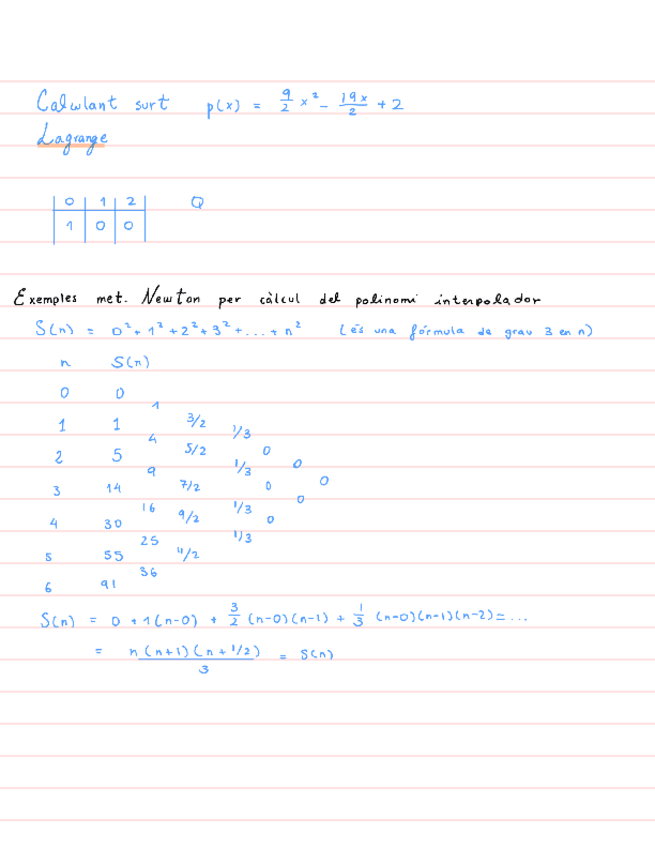 Calculant surt p(x) = 9/2 x² - 19x/2 + 2
Lagrange
0 1 2 Q
1 0 0
Exemples met. Newton per càlcul del polinomi interpolador
S(n) = 0² + 1² + 2² + 3² + ... + n² (és una fórmula de grau 3 en n)
n S(n)
0 0
1
1 1 3/2 1/3
4
2 5 5/2 0
9 1/3 0
3 14 7/2 0 0
16 1/3 0
4 30 9/2 0
25 1/3
5 55 11/2
36
6 91
S(n) = 0 + 1(n-0) + 3/2 (n-0)(n-1) + 1/3 (n-0)(n-1)(n-2) = ...
= n(n+1)(n+1/2)/3 = S(n)